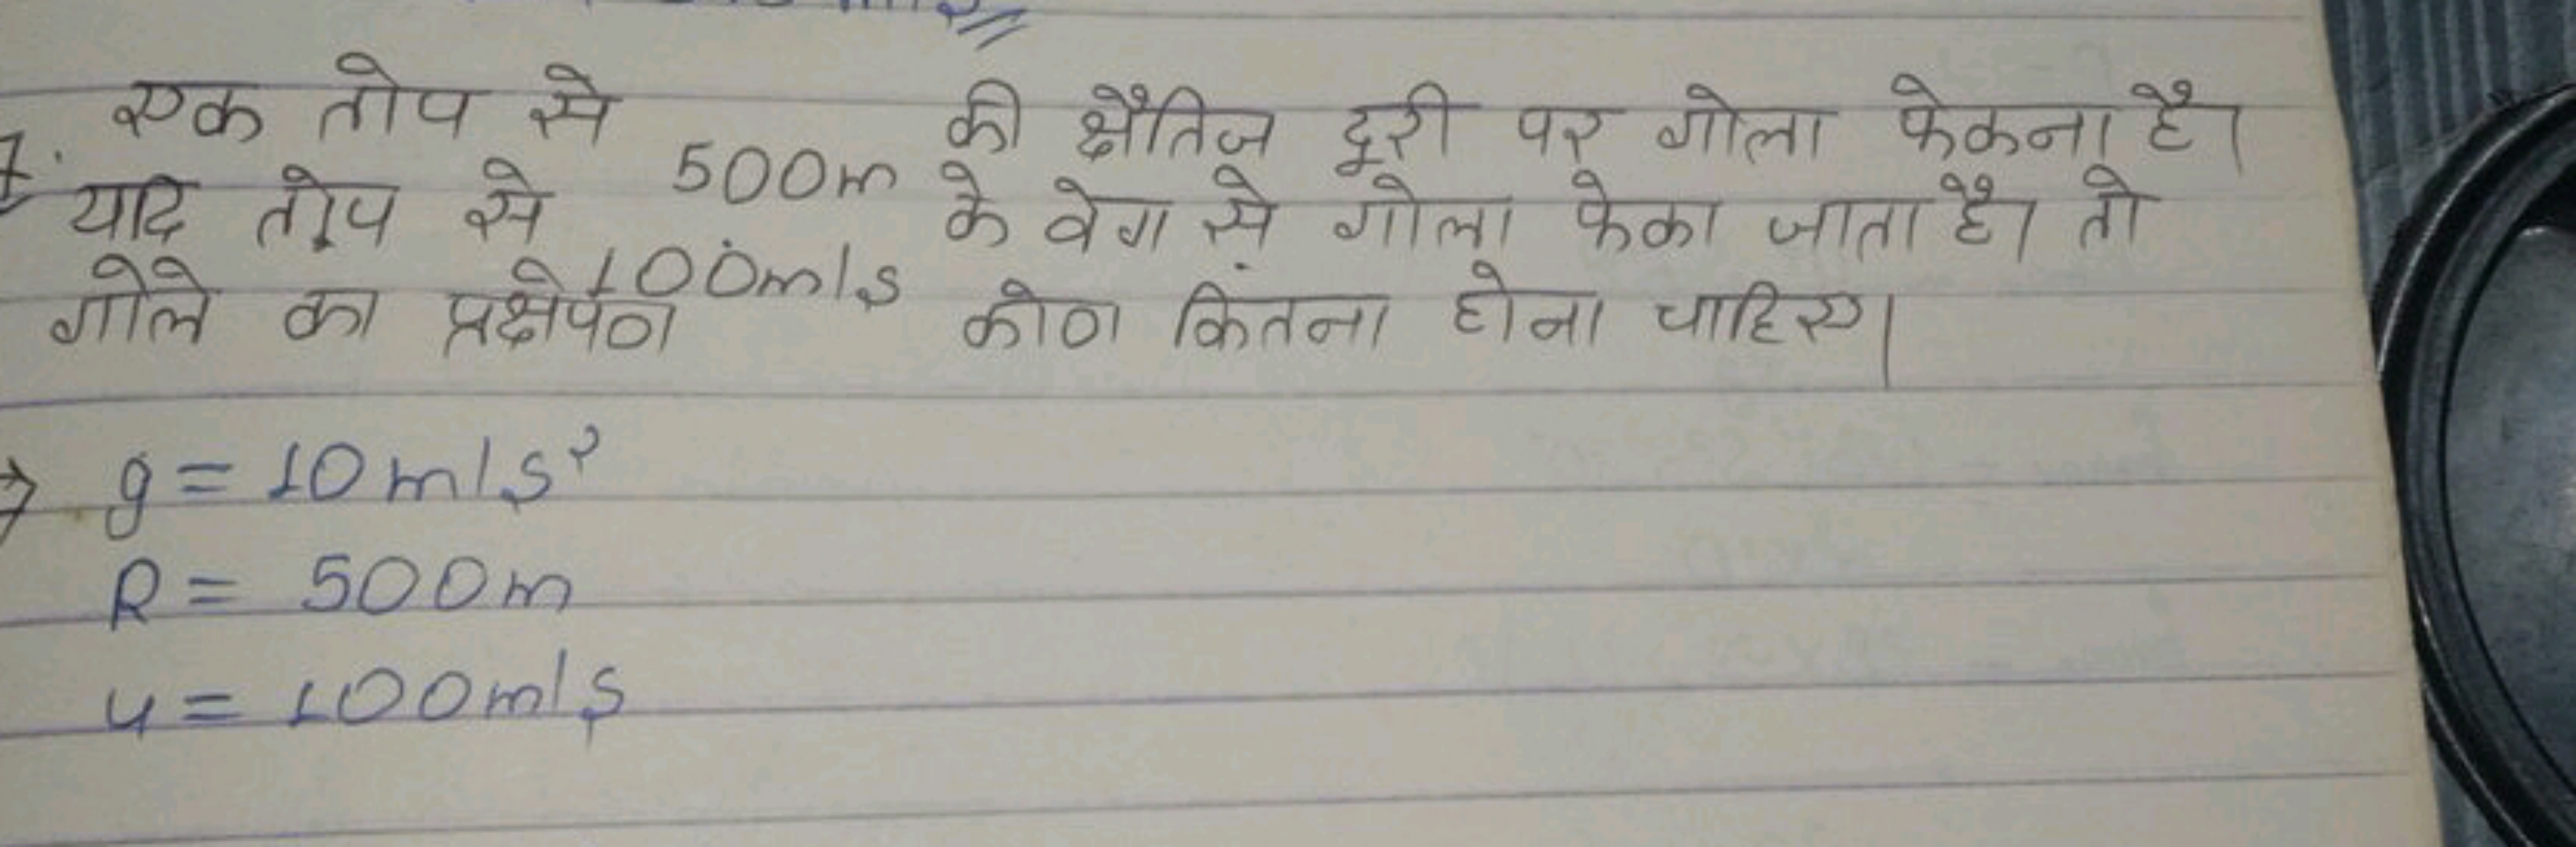 7. एक तोप से 500m की क्षैतिज दूरी पर गोला फेकना है।
यदि तोप से 100m/s के वेग से गोला फेका जाता है। तो
गोले का प्रक्षेपण कोण कितना होना चाहिए।
→ g = 10m/s²
R = 500m
u = 100m/s